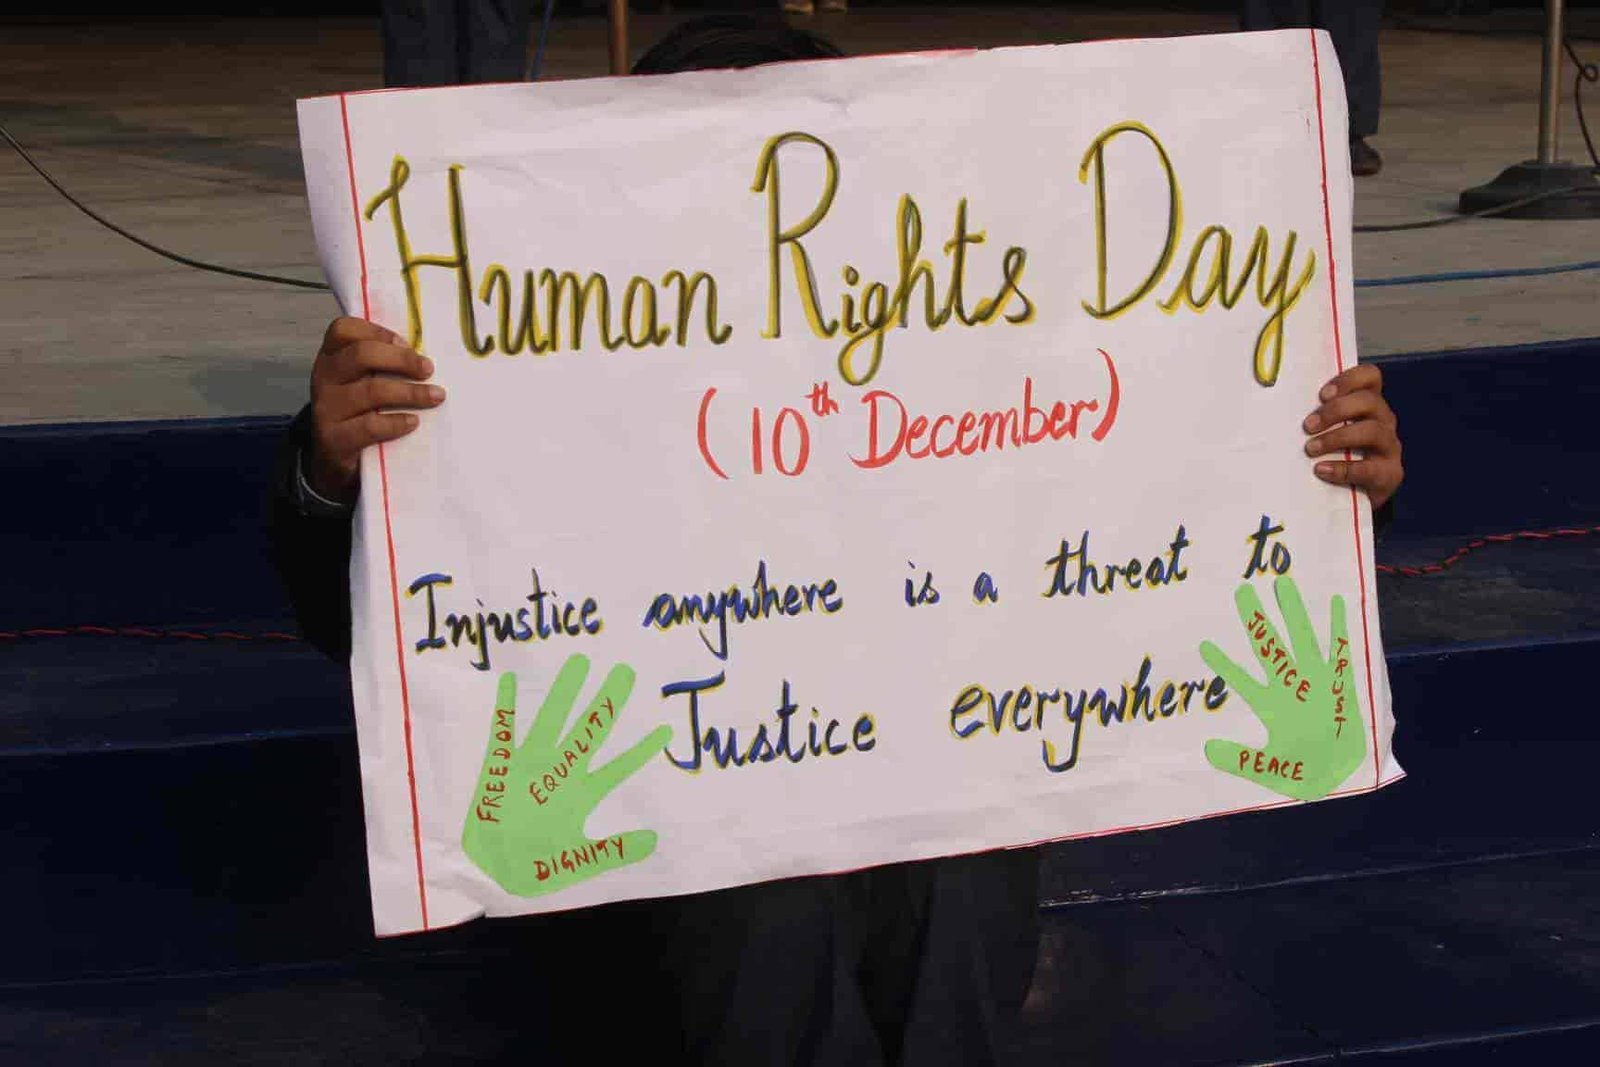 Human Rights Day
(10th December)
Injustice anywhere is a threat to
Justice everywhere
FREEDOM
EQUALITY
DIGNITY
JUSTICE
TRUST
PEACE